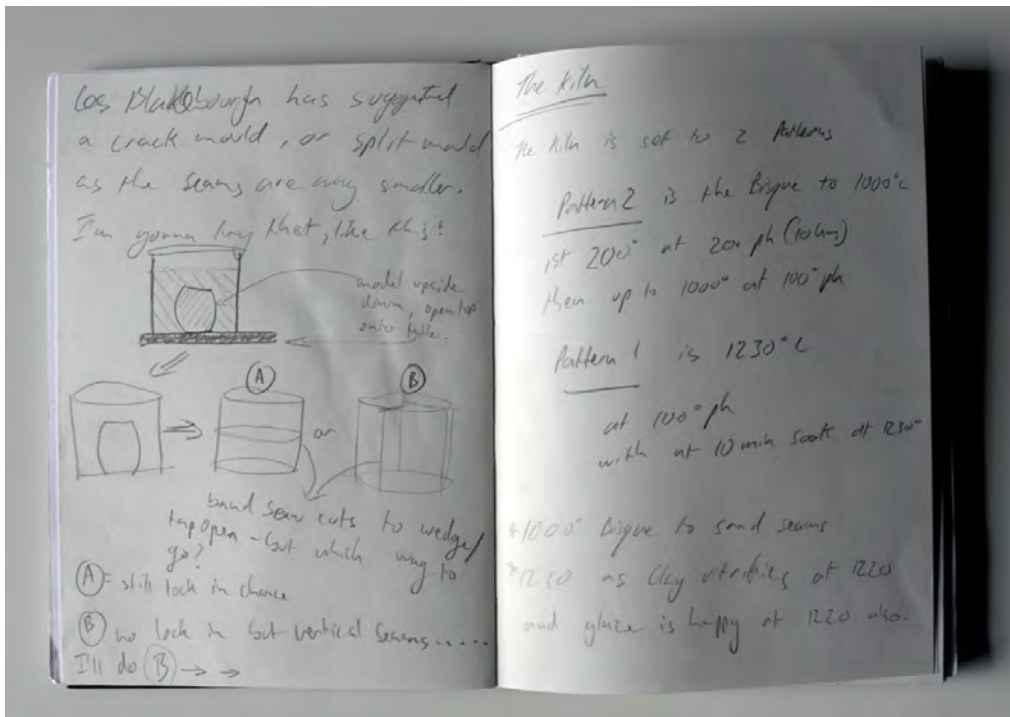 has suggested
a crack mould, or split mould
as the seams are way smaller.
I'm gonna try that, like this!
model upside
down, open top
onto table.
A
B
or
band saw cuts to wedge/
tap open - but which way to
go?
A = still lock in chance
B no lock in but vertical seams.....
I'll do B → →
The Kiln
The Kiln is set to 2 Patterns
Pattern 2 is the Bisque to 1000°c
1st 200° at 200 ph
then up to 1000° at 100° ph
Pattern 1 is 1230°c
at 100° ph
with at 10 min soak at 1230°
*1000° Bisque to sand seams
*1230 as Clay vitrifies at 1220
and glaze is happy at 1220 also.